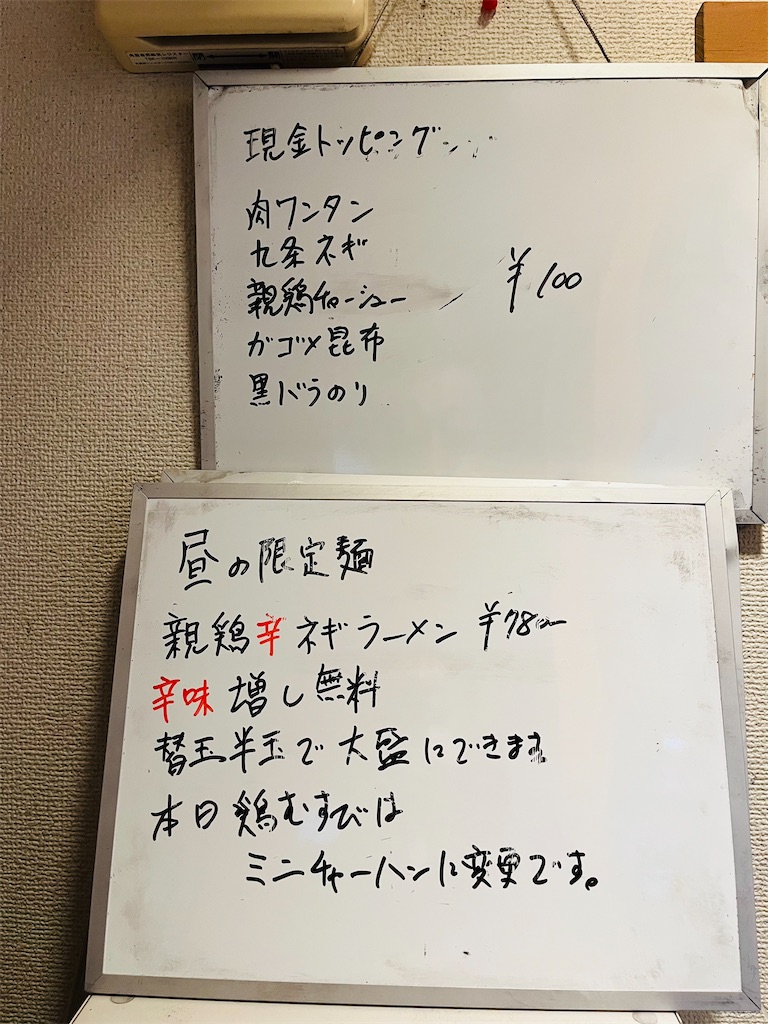 現金トッピング
肉ワンタン
九条ネギ
親鶏チャーシュー
ガゴメ昆布
黒バラのり
¥100
昼の限定麺
親鶏辛ネギラーメン ¥780
辛味増し無料
替玉半玉で大盛にできます
本日鶏むすびは
ミニチャーハンに変更です。